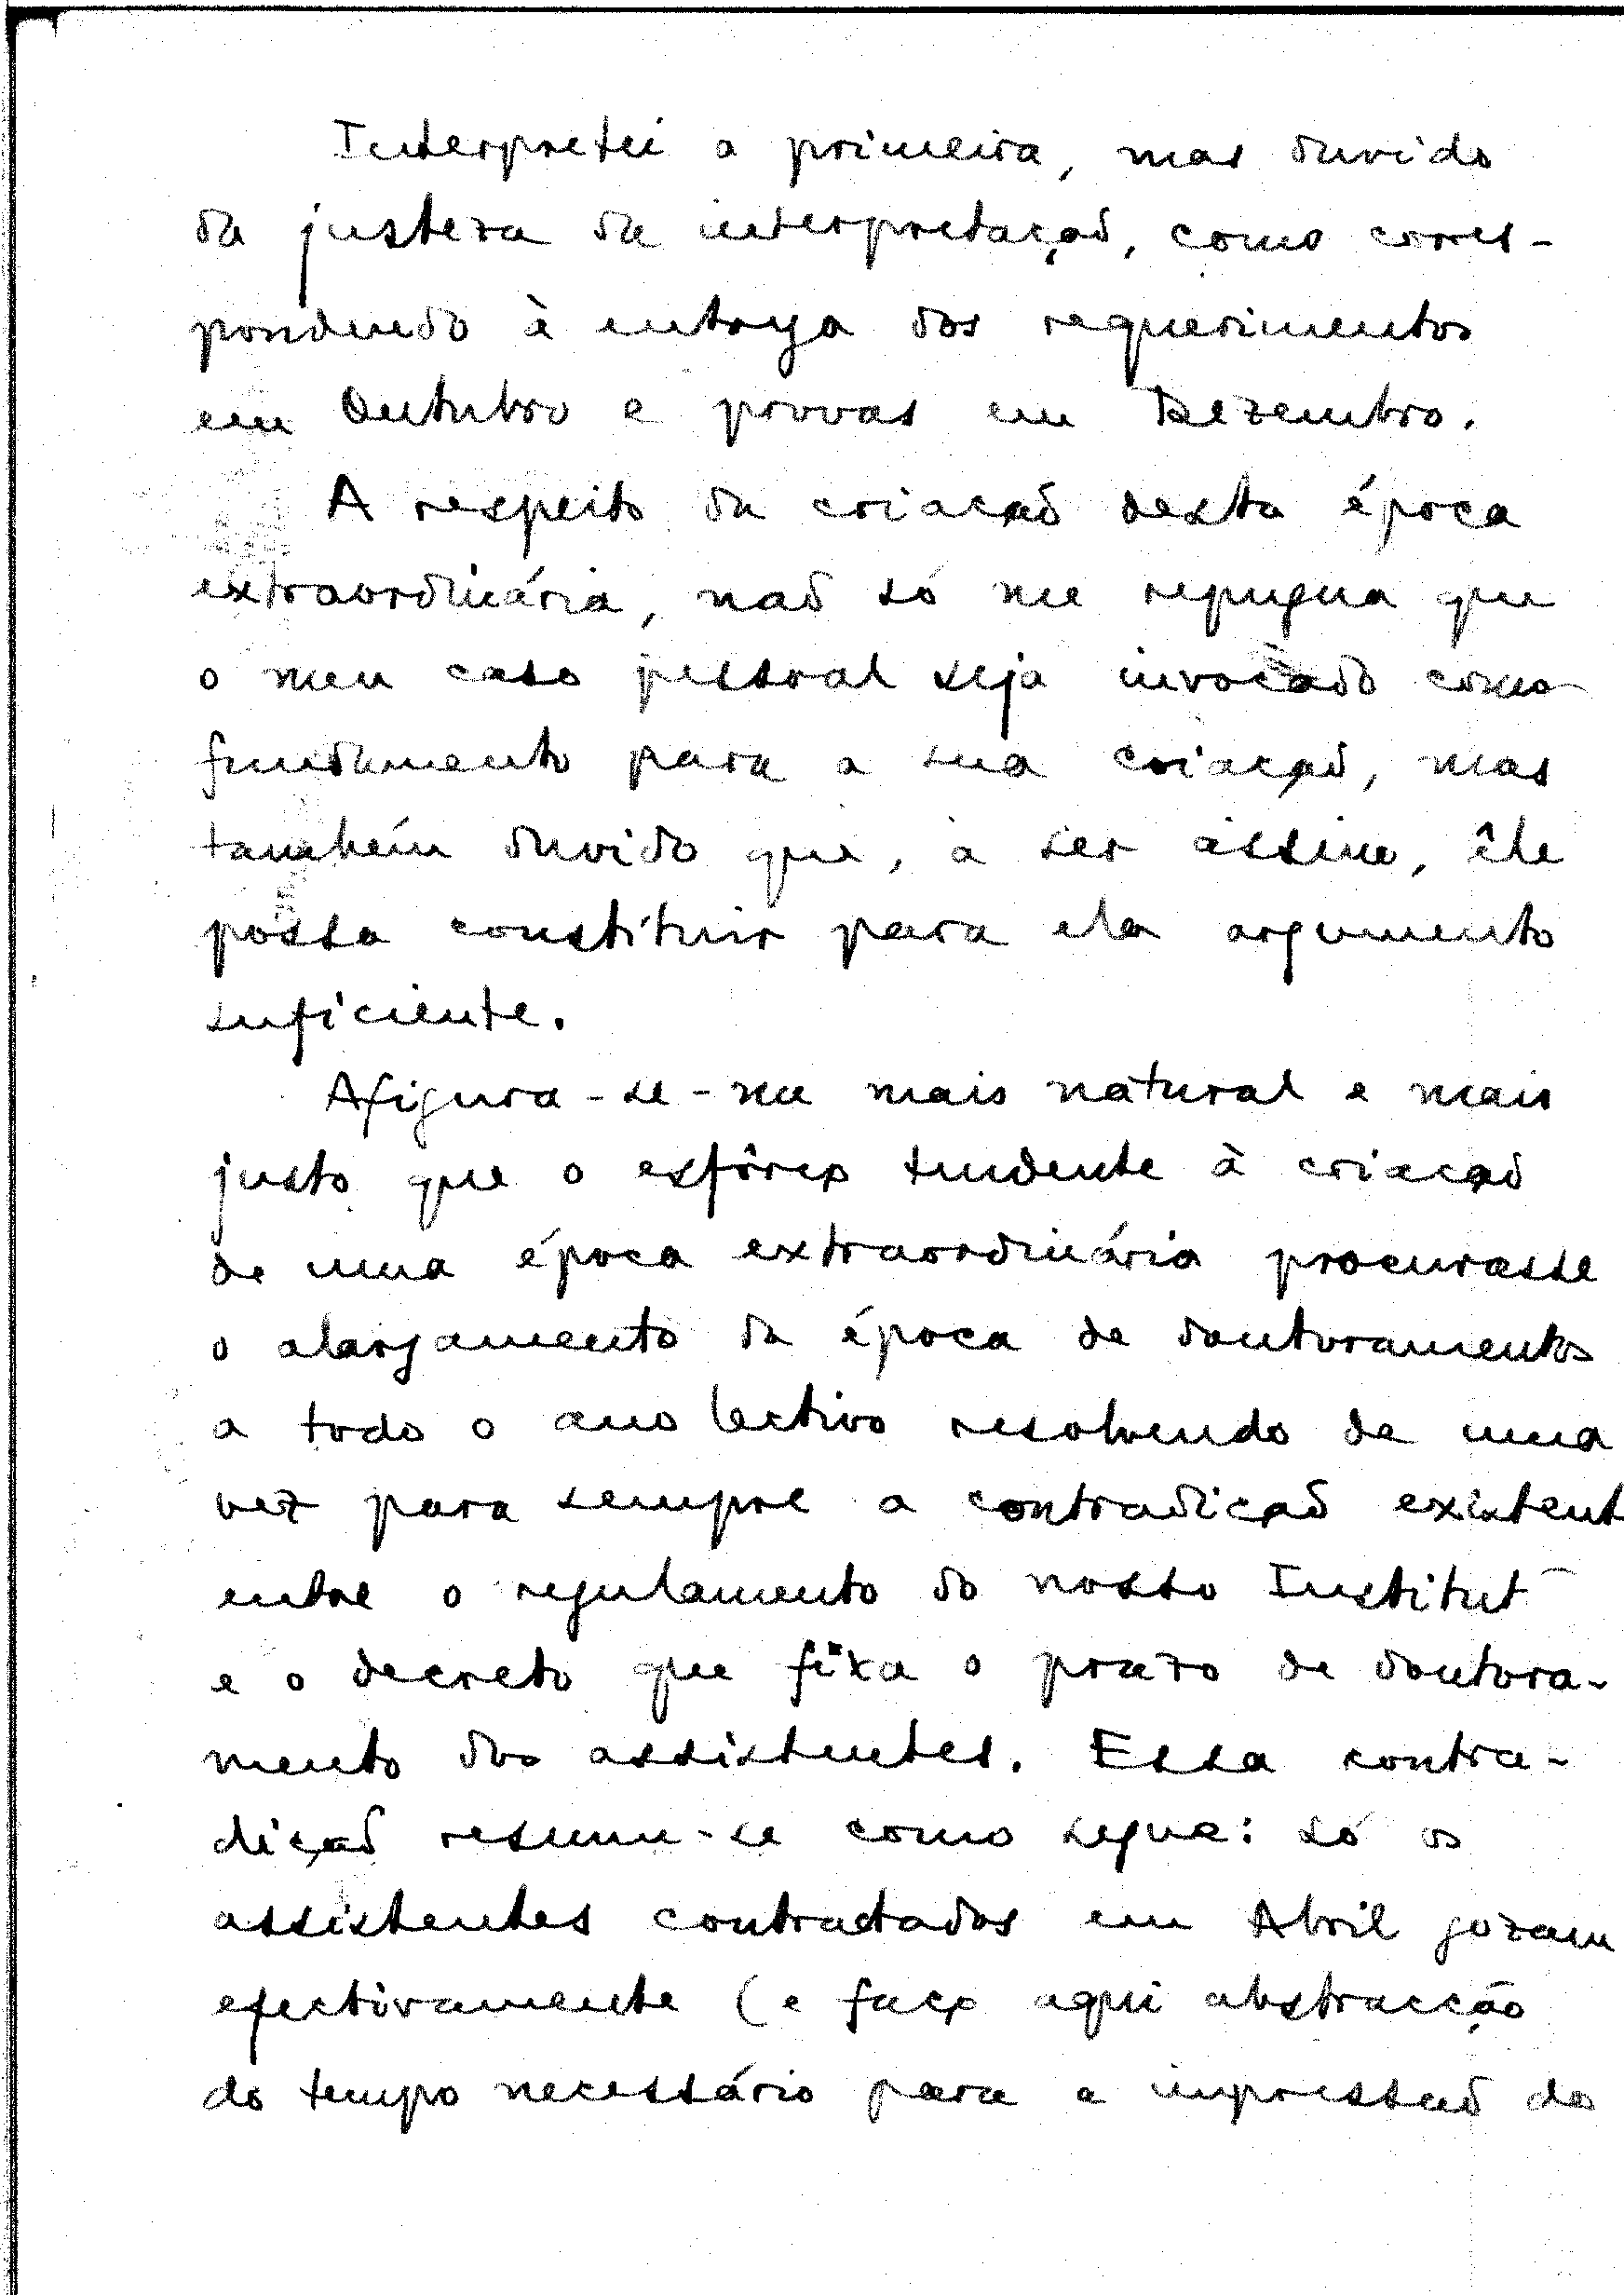 Interpretei a primeira, mas duvido
da justeza da interpretação, como corres-
pondendo à entrega dos requerimentos
em Outubro e provas em Dezembro.
A respeito da criação desta época
extraordinária, não só me repugna que
o meu caso pessoal seja invocado como
fundamento para a sua criação, mas
também duvido que, a ser assim, êle
possa constituir para ela argumento
suficiente.
Afigura-se-me mais natural e mais
justo que o esfôrço tendente à criação
de uma época extraordinária procurasse
o alargamento da época de doutoramentos
a todo o ano lectivo resolvendo de uma
vez para sempre a contradição existent
entre o regulamento do nosso Institut
e o decreto que fixa o prazo de doutora-
mento dos assistentes. Essa contra-
dição resume-se como segue: só os
assistentes contractados em Abril gozam
efectivamente (e faço aqui abstracção
do tempo necessário para a impressão do